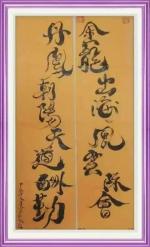 金龍出海風雲際會
丹鳳朝陽天道酬勤